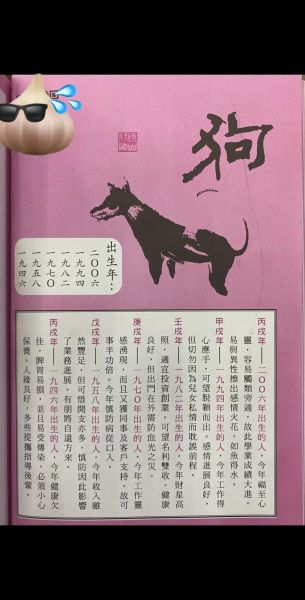 狗
出生年：
二○○六
一九九四
一九八二
一九七○
一九五八
一九四六
丙戌年——二○○六年出生的人，今年福至心
靈，容易觸類旁通，故此學業成績大進，
易與異性擦出感情火花，如魚得水。
甲戌年——一九九四年出生的人，今年工作得
心應手，可望脫穎而出。感情進展良好，
但切勿因為兒女私情而耽誤前程。
壬戌年——一九八二年出生的人，今年財星高
照，適宜投資創業，可望名利雙收。健康
良好，但出門在外需防血光之災。
庚戌年——一九七○年出生的人，今年工作靈
感湧現，而且又獲同事及客戶支持，故可
事半功倍。今年慎防病從口入。
戊戌年——一九五八年出生的人，今年收入雖
然豐足，但可惜開支亦多，慎防因此影響
了業務進展。有朋將自遠方來。
丙戌年——一九四六年出生的人，今年健康欠
佳，脾胃易損，並且易受傳染，必須小心
保養。人緣良好，多些提攜指導後輩。